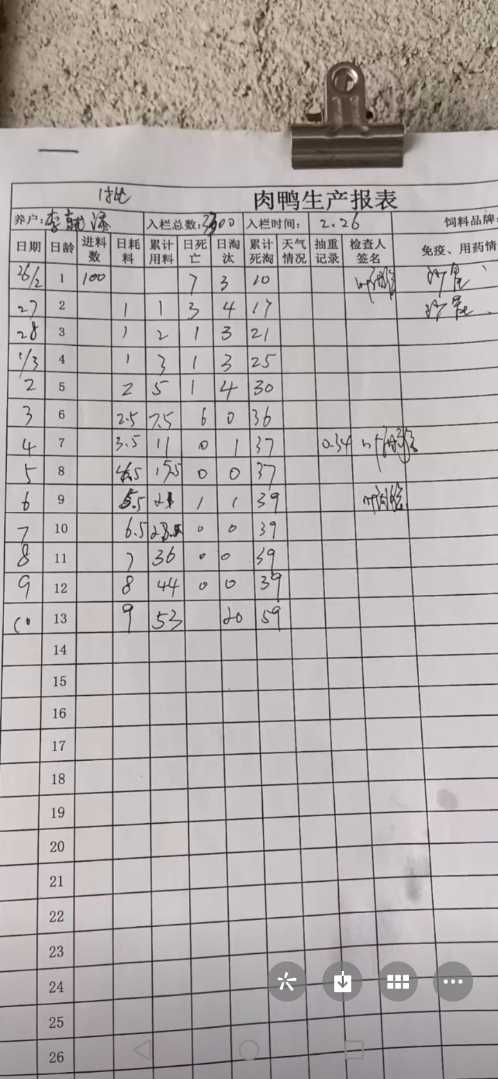 肉鸭生产报表
养户: 入栏总数: 入栏时间: 2.26 饲料品牌:
日期 日龄 进料数 日耗料 累计用料 日死亡 日淘汰 累计死淘 天气情况 抽重记录 检查人签名 免疫、用药情
26/2 1 100 7 3 10
27 2 1 1 3 4 17
28 3 1 2 1 3 21
1/3 4 1 3 1 3 25
2 5 2 5 1 4 30
3 6 2.5 7.5 6 0 36
4 7 3.5 11 0 1 37 0.34
5 8 4.5 15.5 0 0 37
6 9 5.5 21 1 1 39
7 10 6.5 0 0 39
8 11 7 36 0 0 39
9 12 8 44 0 0 39
10 13 9 53 20 59
14
15
16
17
18
19
20
21
22
23
24
25
26